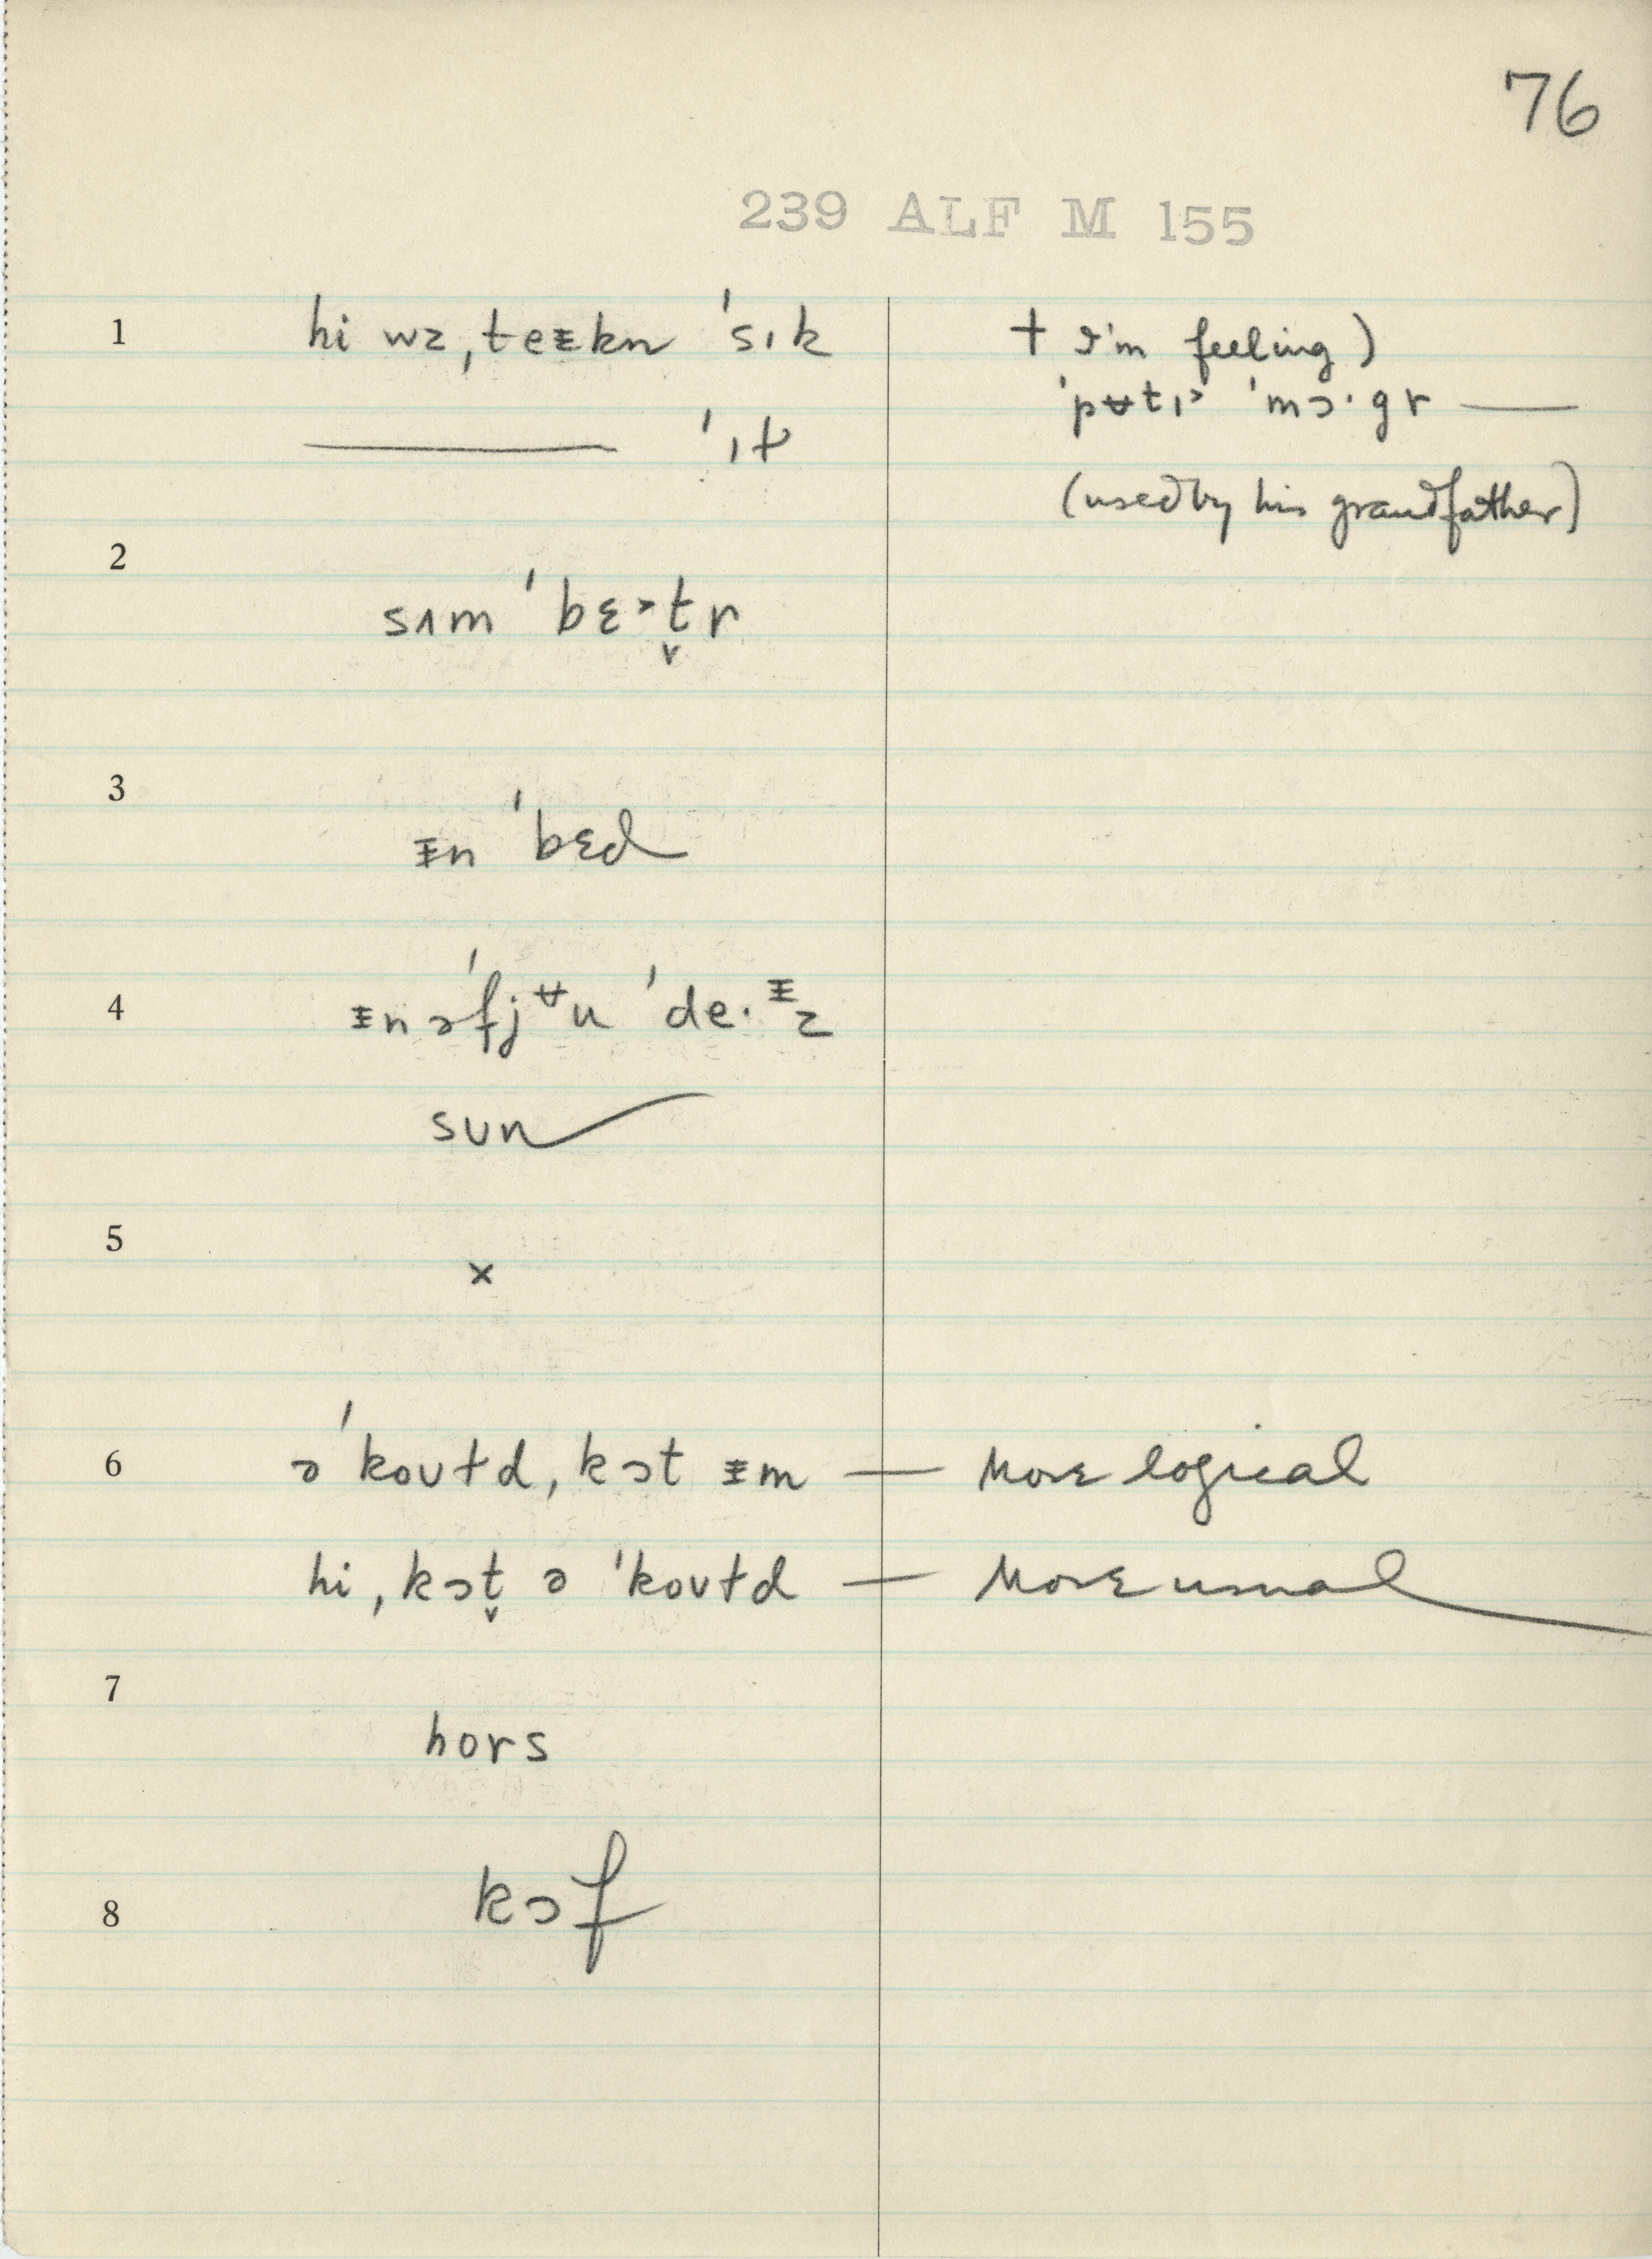 76
239 ALF M 155
1 hi wz ˌteᵻkn ˈsɪk † I'm feeling)
ˈpʉtɪ˃ ˈmɔ·gr —
— ˈɪɫ
(used by his grandfather)
2
sʌm ˈbɛ˃t̬r
3
ᵻn ˈbɛd
4 ᵻn ə ˈfjᶶu ˈde·ᵻz
sun
5
×
6 ə ˈkoʊɫd ˌkɔt ᵻm — More logical
hi ˌkɔt̬ ə ˈkoʊɫd — More usual
7
hors
8 kɔf